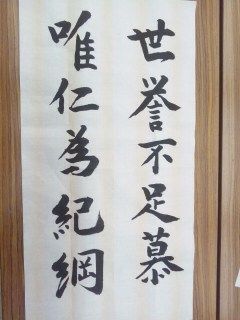 世誉不足慕
唯仁為紀綱